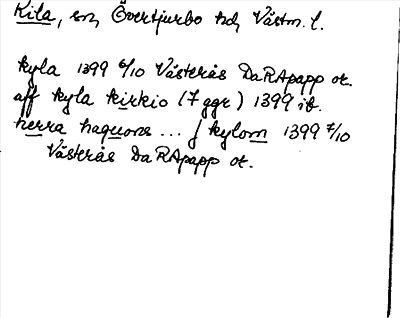 Kila, sn, Övertjurbo hd, Västm. l.
kyla 1399 6/10 Västerås DaRApapp or.
aff kyla kirkio (7 ggr) 1399 ib.
herra haquons ... j kylom 1399 7/10
Västerås DaRApapp or.